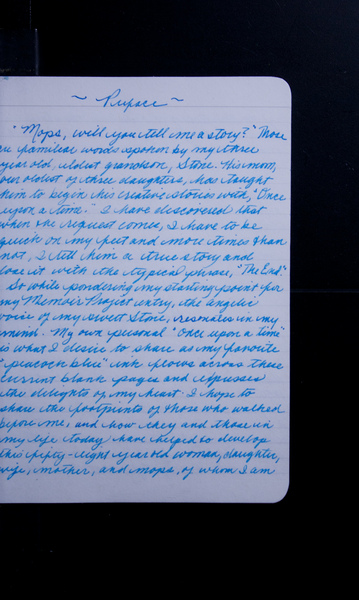 ~ Preface ~
"Mops, will you tell me a story?" Those
are familiar words spoken by my three
year old, eldest grandson, Stone. His mom,
our oldest of three daughters, has taught
him to begin his creative stories with, "Once
upon a time." I have discovered that
when the request comes, I have to be
quick on my feet and more times than
not, I tell him a true story and
close it with the typical phrase, "The End".
So while pondering my starting point for
my Memoir Project entry, the angelic
voice of my sweet Stone, resonates in my
mind. My own personal "Once upon a time"
is what I desire to share as my favorite
"peacock blue" ink flows across these
current blank pages and expresses
the delights of my heart. I hope to
share the footprints of those who walked
before me, and how they and those in
my life today have helped to develop
this fifty-eight year old woman, daughter,
wife, mother, and mops, of whom I am